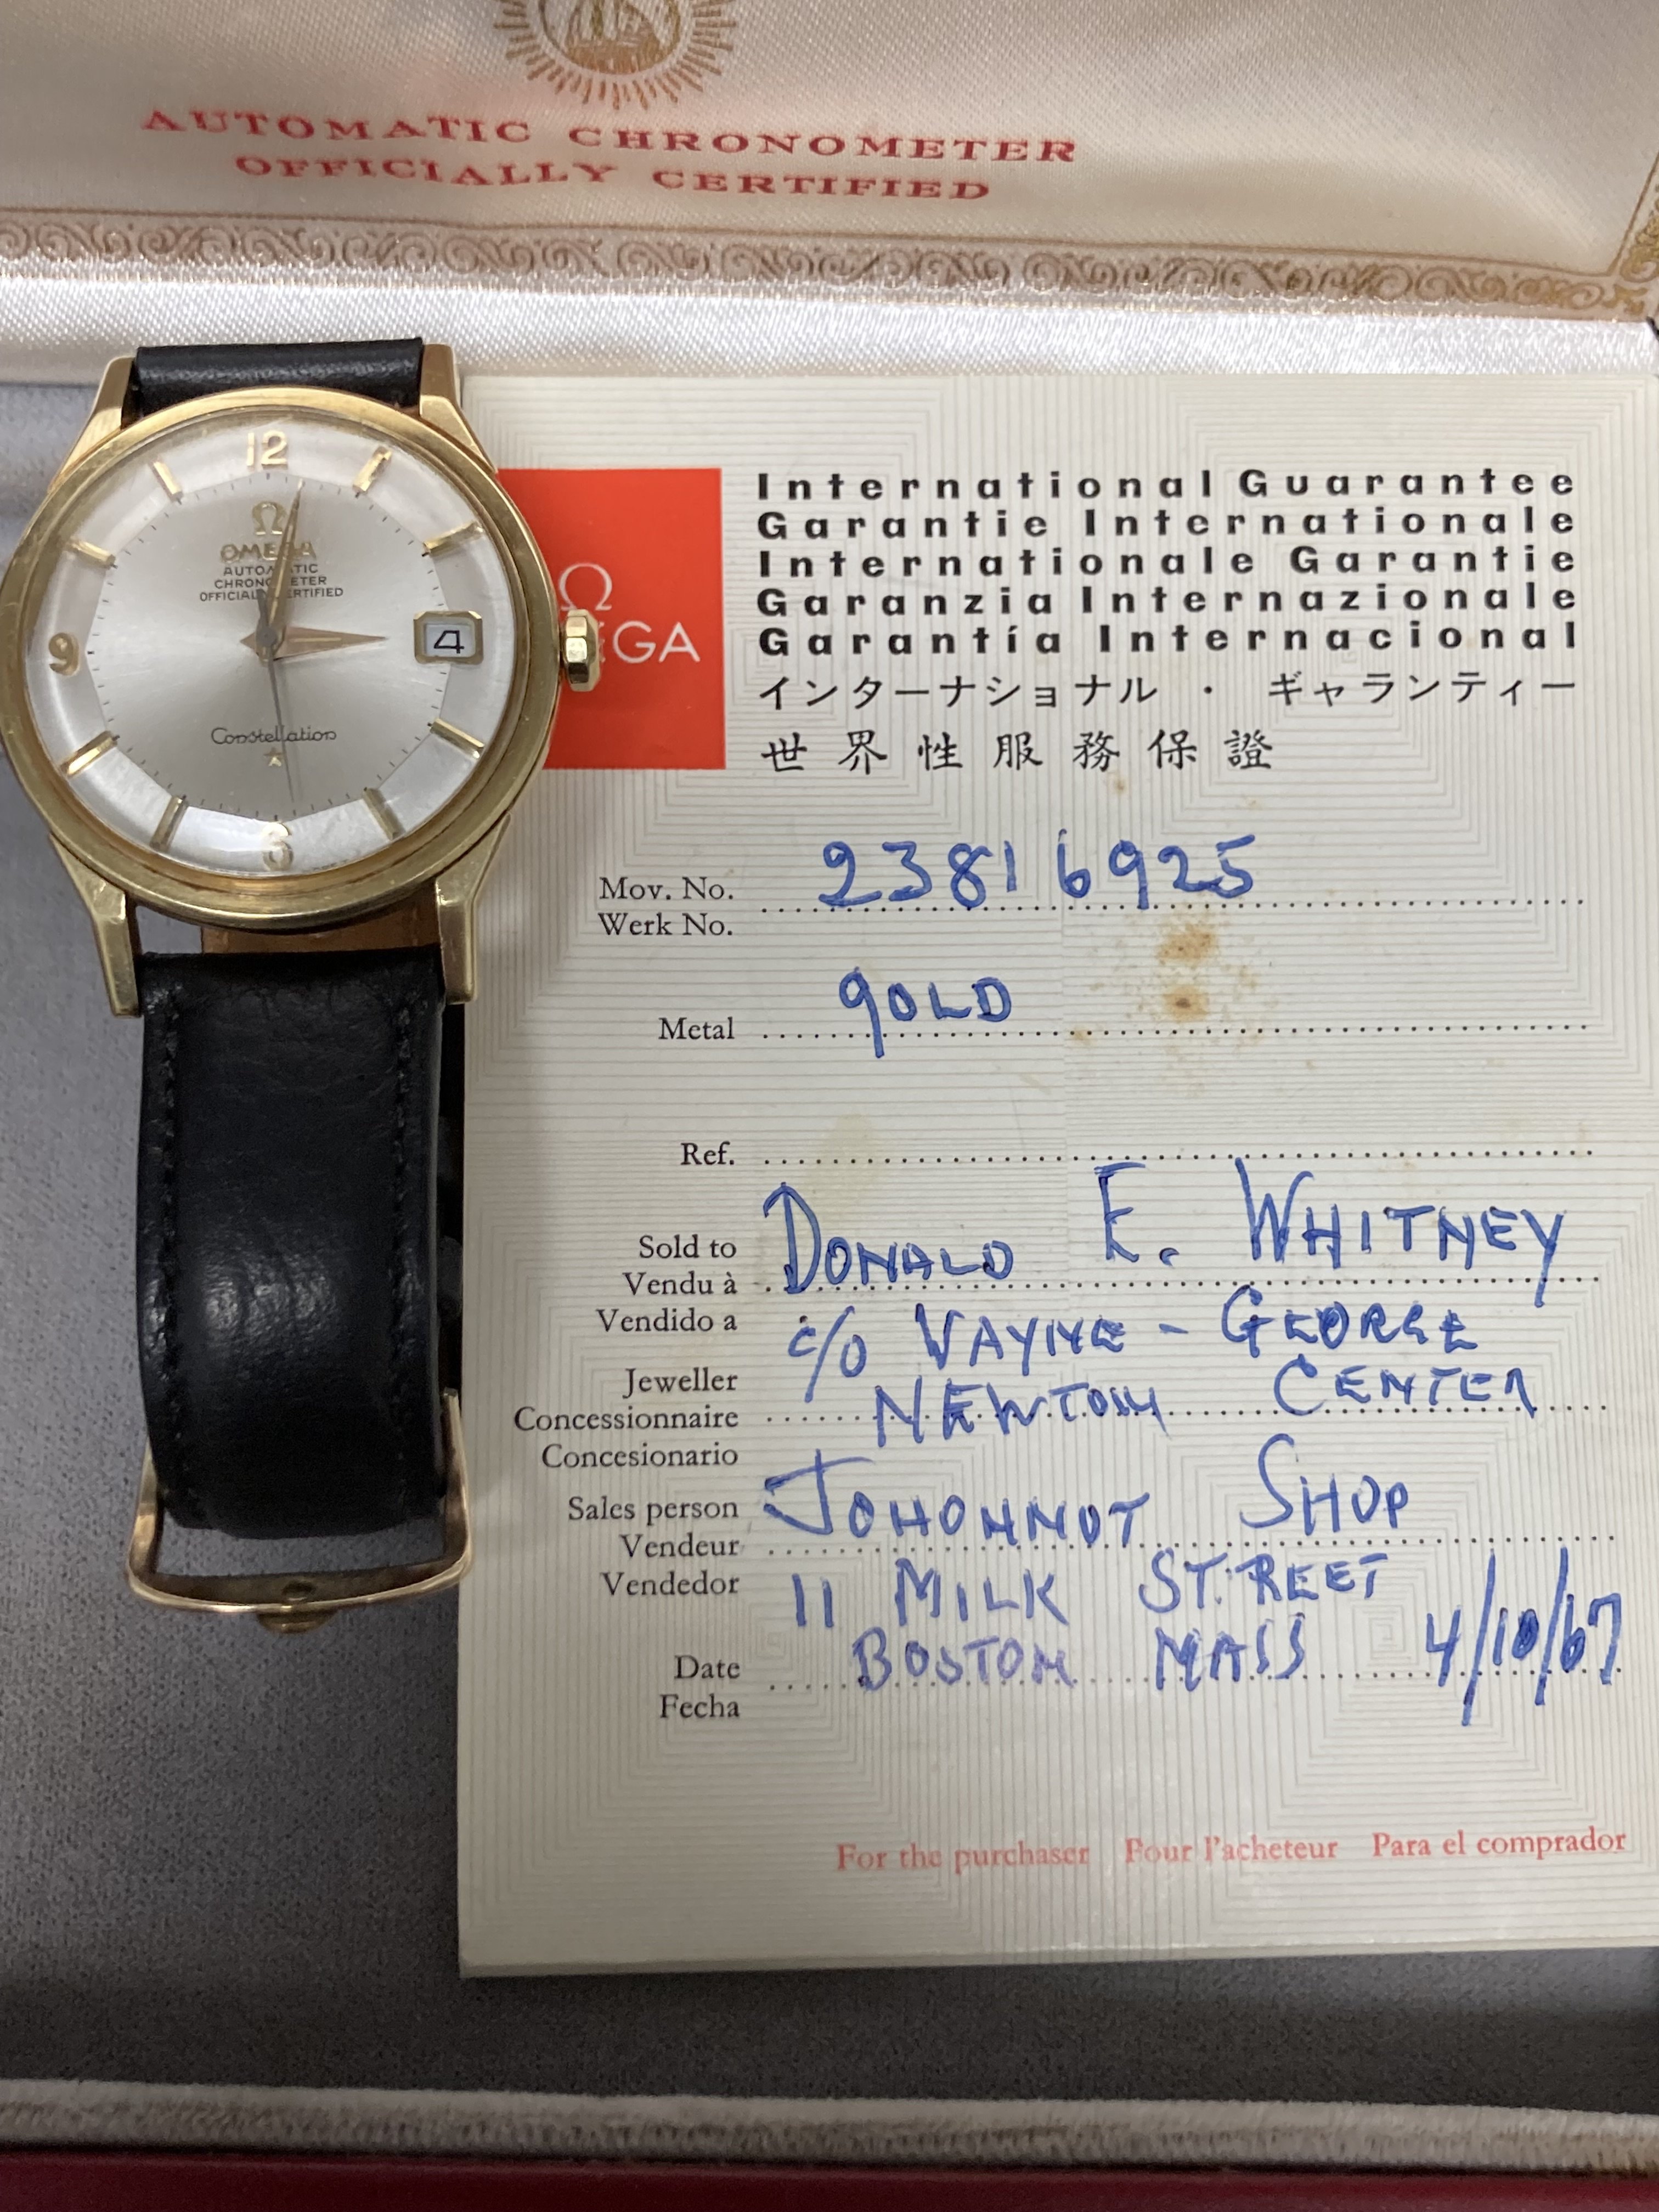 AUTOMATIC CHRONOMETER
OFFICIALLY CERTIFIED
12
Ω
OMEGA
AUTOMATIC
CHRONOMETER
OFFICIALLY CERTIFIED
9
4
Constellation
6
Ω
OMEGA
International Guarantee
Garantie Internationale
Internationale Garantie
Garanzia Internazionale
Garantía Internacional
インターナショナル ・ ギャランティー
世界性服務保證
Mov. No. 23816925
Werk No.
Metal gOLD
Ref.
Sold to DONALD E. WHITNEY
Vendu à
Vendido a c/o WAYNE - GEORGE
Jeweller NEWTON CENTER
Concessionnaire
Concesionario
Sales person JOHONNOT SHOP
Vendeur
Vendedor 11 MILK STREET
Date BOSTON MASS 4/10/67
Fecha
For the purchaser Pour l'acheteur Para el comprador